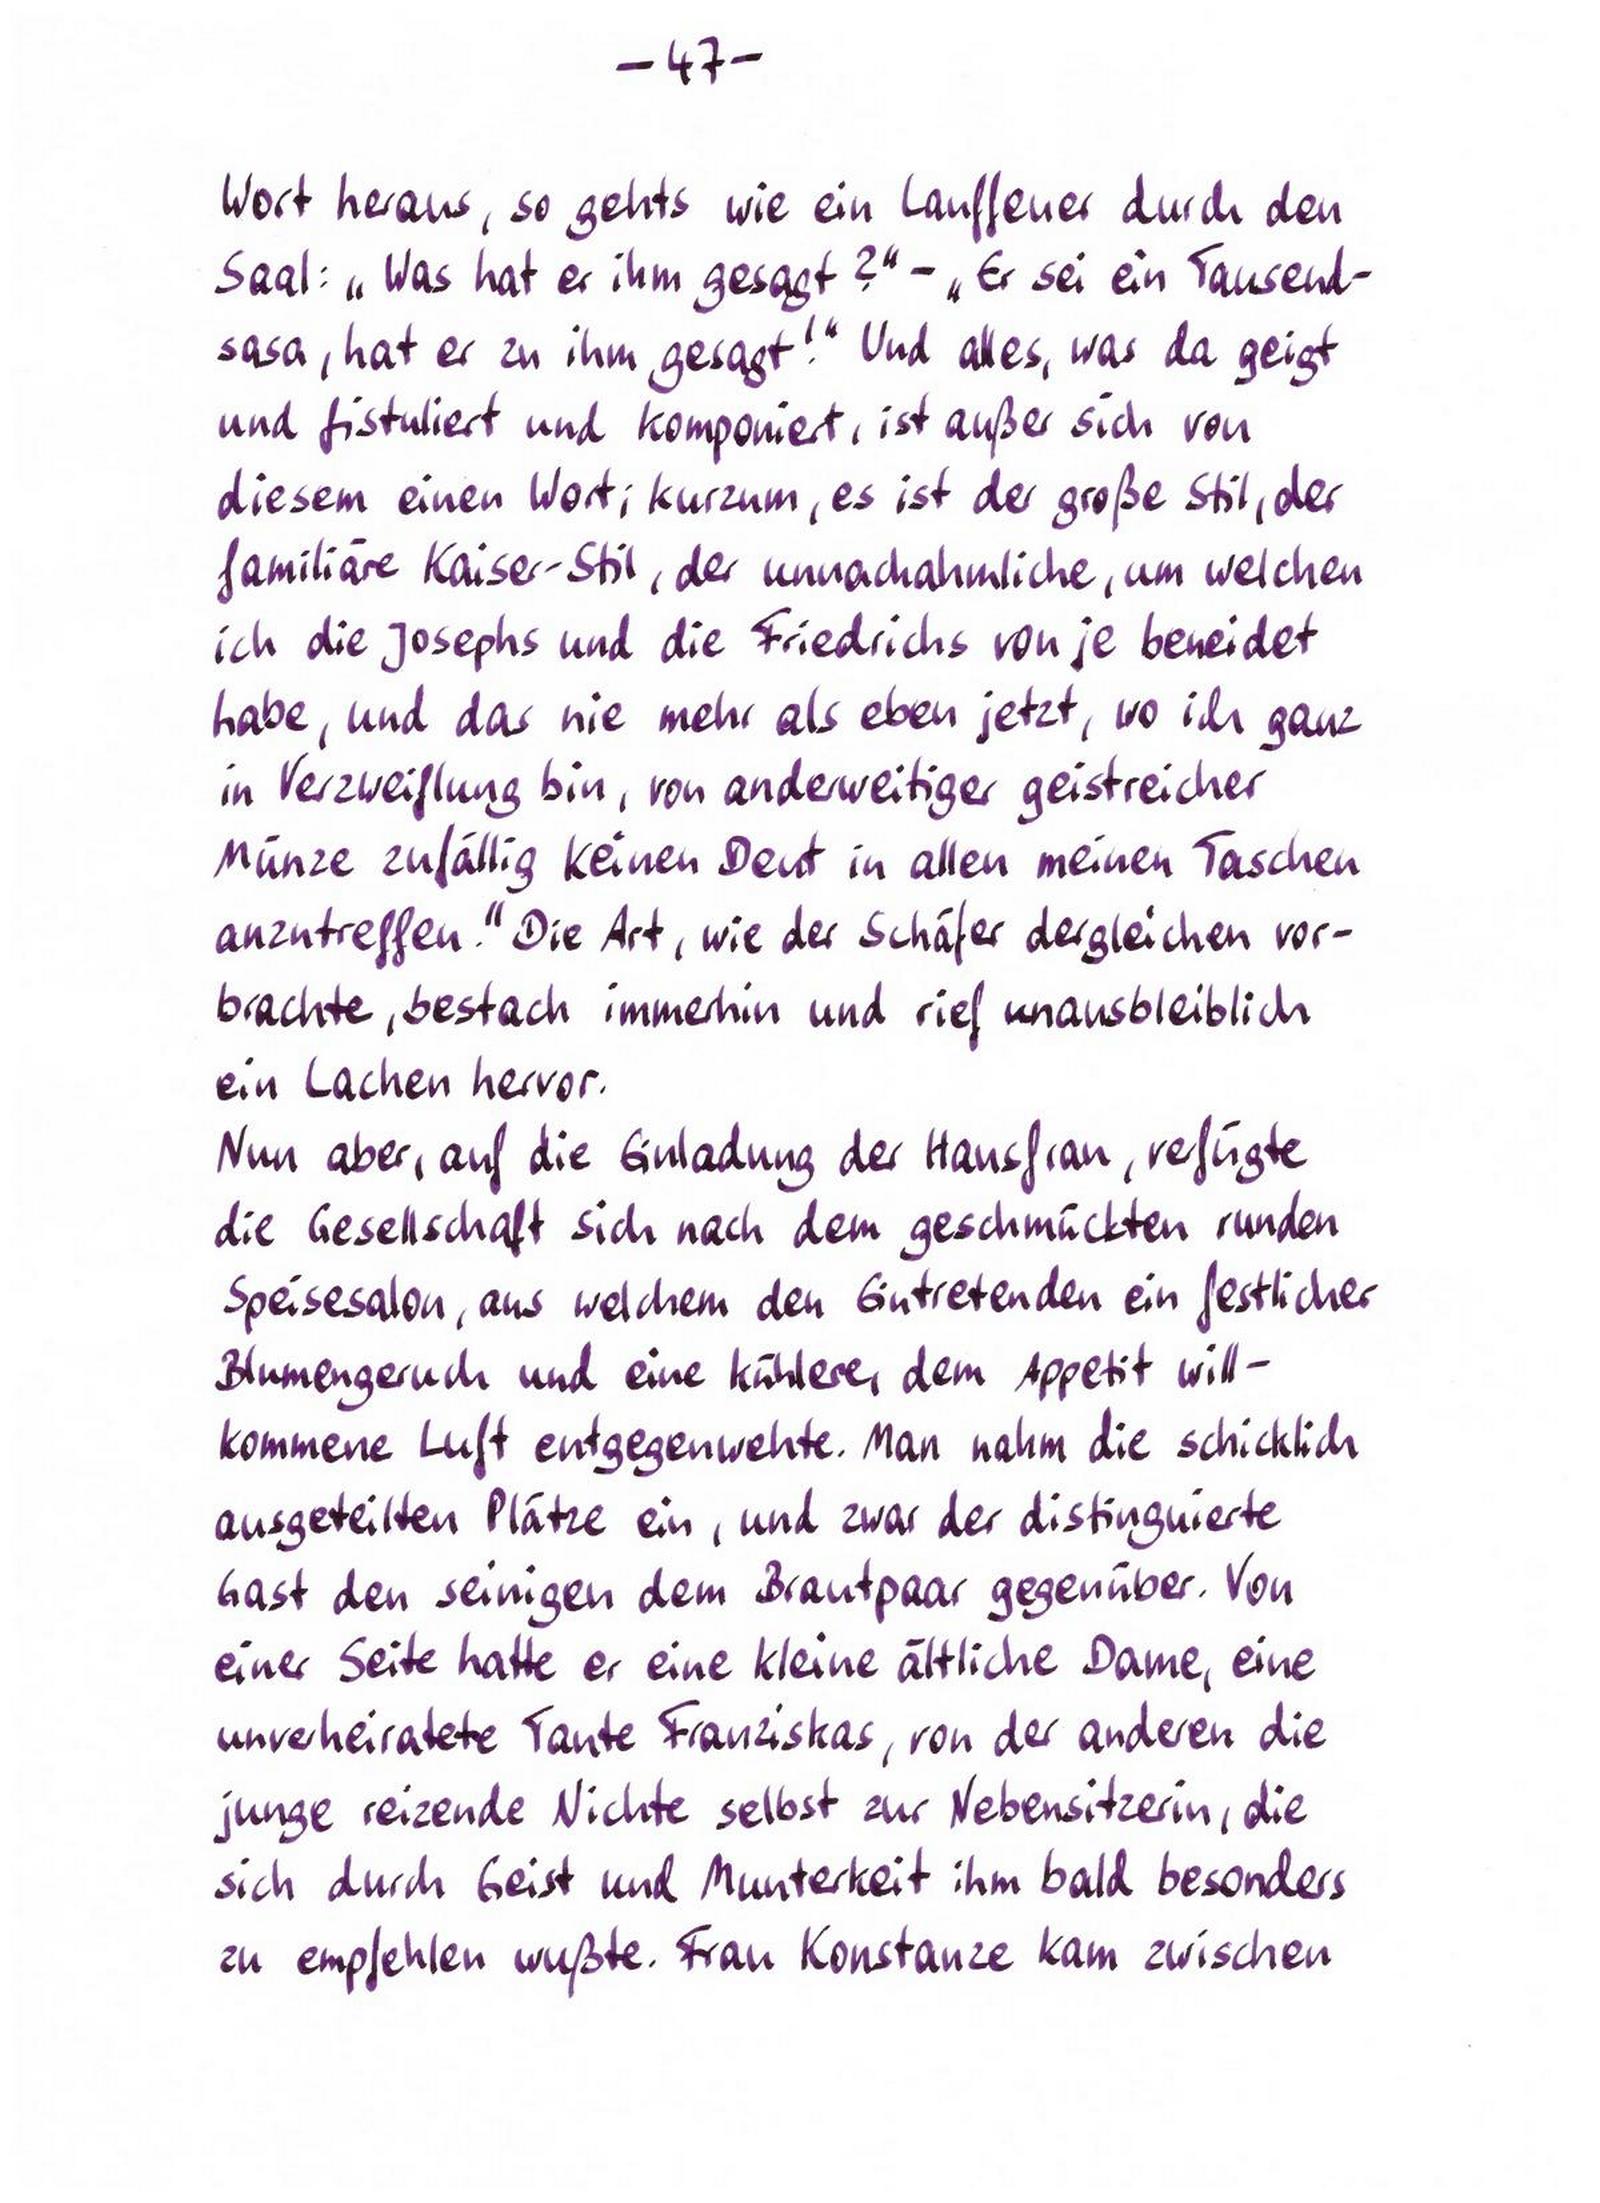 -47-
Wort heraus, so gehts wie ein Lauffeuer durch den
Saal: „Was hat er ihm gesagt?“ - „Er sei ein Tausend-
sasa, hat er zu ihm gesagt!“ Und alles, was da geigt
und fistuliert und komponiert, ist außer sich von
diesem einen Wort; kurzum, es ist der große Stil, der
familiäre Kaiser-Stil, der unnachahmliche, um welchen
ich die Josephs und die Friedrichs von je beneidet
habe, und das nie mehr als eben jetzt, wo ich ganz
in Verzweiflung bin, von anderweitiger geistreicher
Münze zufällig keinen Deut in allen meinen Taschen
anzutreffen.“ Die Art, wie der Schäfer dergleichen vor-
brachte, bestach immerhin und rief unausbleiblich
ein Lachen hervor.
Nun aber, auf die Einladung der Hausfrau, verfügte
die Gesellschaft sich nach dem geschmückten runden
Speisesalon, aus welchem den Eintretenden ein festlicher
Blumengeruch und eine kühlere, dem Appetit will-
kommene Luft entgegenwehte. Man nahm die schicklich
ausgeteilten Plätze ein, und zwar der distinguierte
Gast den seinigen dem Brautpaar gegenüber. Von
einer Seite hatte er eine kleine ältliche Dame, eine
unverheiratete Tante Franziskas, von der anderen die
junge reizende Nichte selbst zur Nebensitzerin, die
sich durch Geist und Munterkeit ihm bald besonders
zu empfehlen wußte. Frau Konstanze kam zwischen